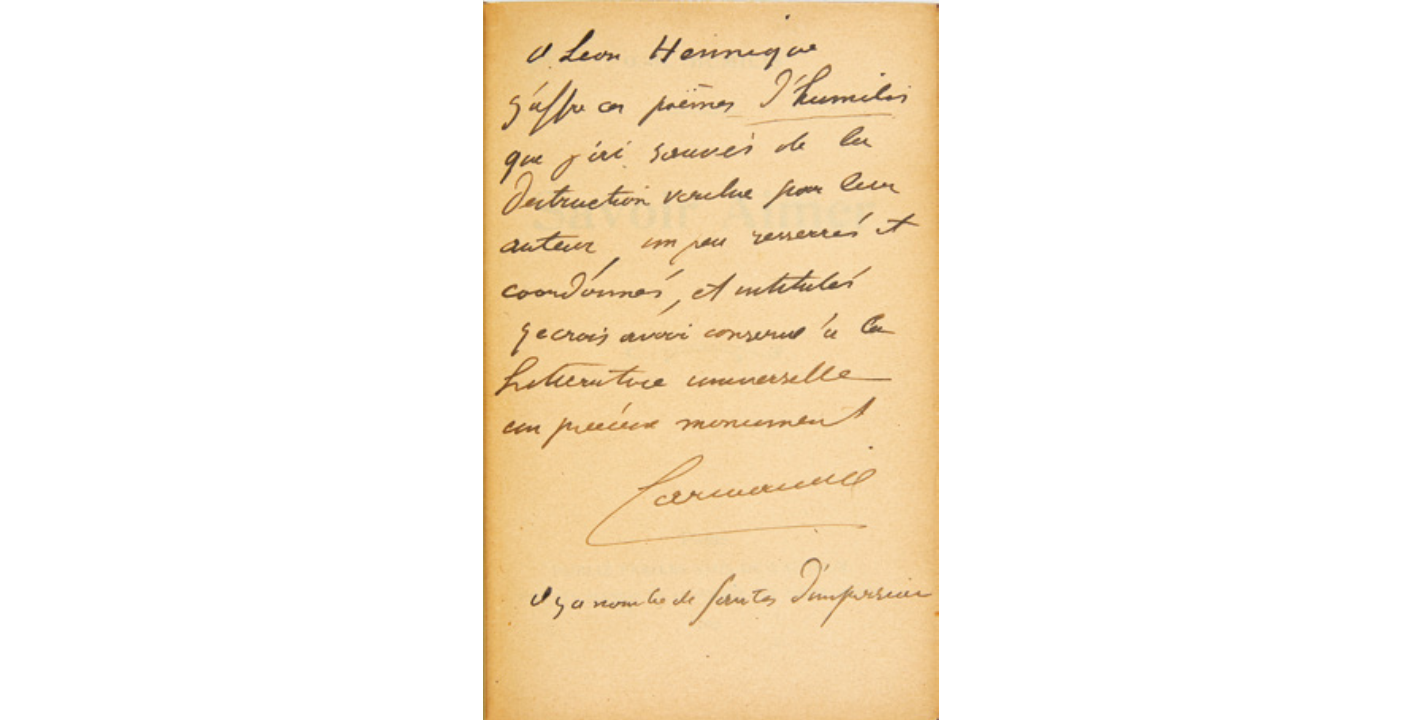 A Léon Hennique
J'offre ces poëmes d'humilis
que j'ai sauvés de la
destruction voulue par leur
auteur, un peu resserrés et
coordonnés, et intitulés
Je crois avoir conservé à la
littérature universelle
un précieux monument
Larmandie
Il y a nombre de fautes d'impression